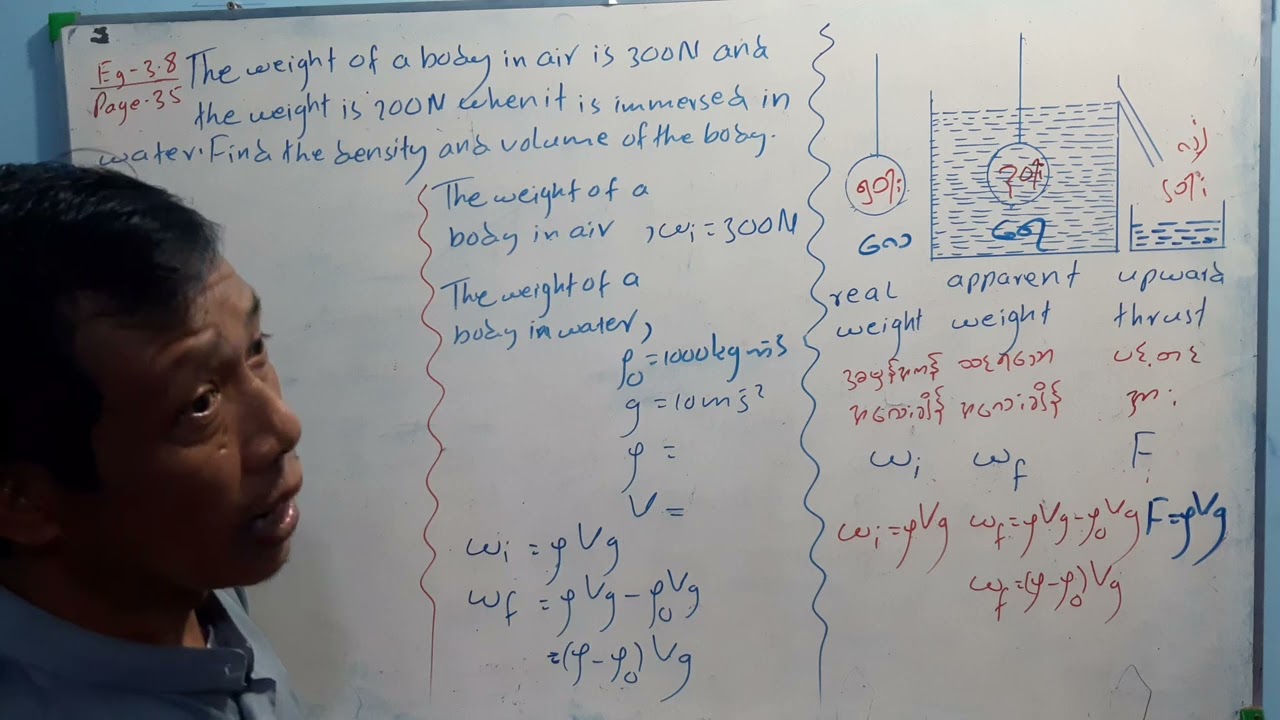 Eg-3.8
Page.35
The weight of a body in air is 300N and
the weight is 200N when it is immersed in
water. Find the density and volume of the body.
The weight of a
body in air , wᵢ = 300N
The weight of a
body in water,
ρ₀ = 1000kg m⁻³
g = 10ms⁻²
ρ =
V =
wᵢ = ρVg
w_f = ρVg - ρ₀Vg
= (ρ - ρ₀)Vg
real
weight
apparent
weight
upward
thrust
အမှန်တကယ်
အလေးချိန်
ထင်ရသော
အလေးချိန်
ပင့်တင်
အား
wᵢ
w_f
F
wᵢ = ρVg
w_f = ρVg - ρ₀Vg
F = ρVg
w_f = (ρ - ρ₀)Vg